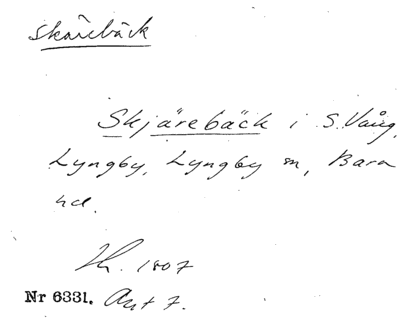 Skärebäck
Skjärebäck i S. Vång,
Lyngby, Lyngby sn, Bara
hd.
1807
Nr 6331. Akt 7.